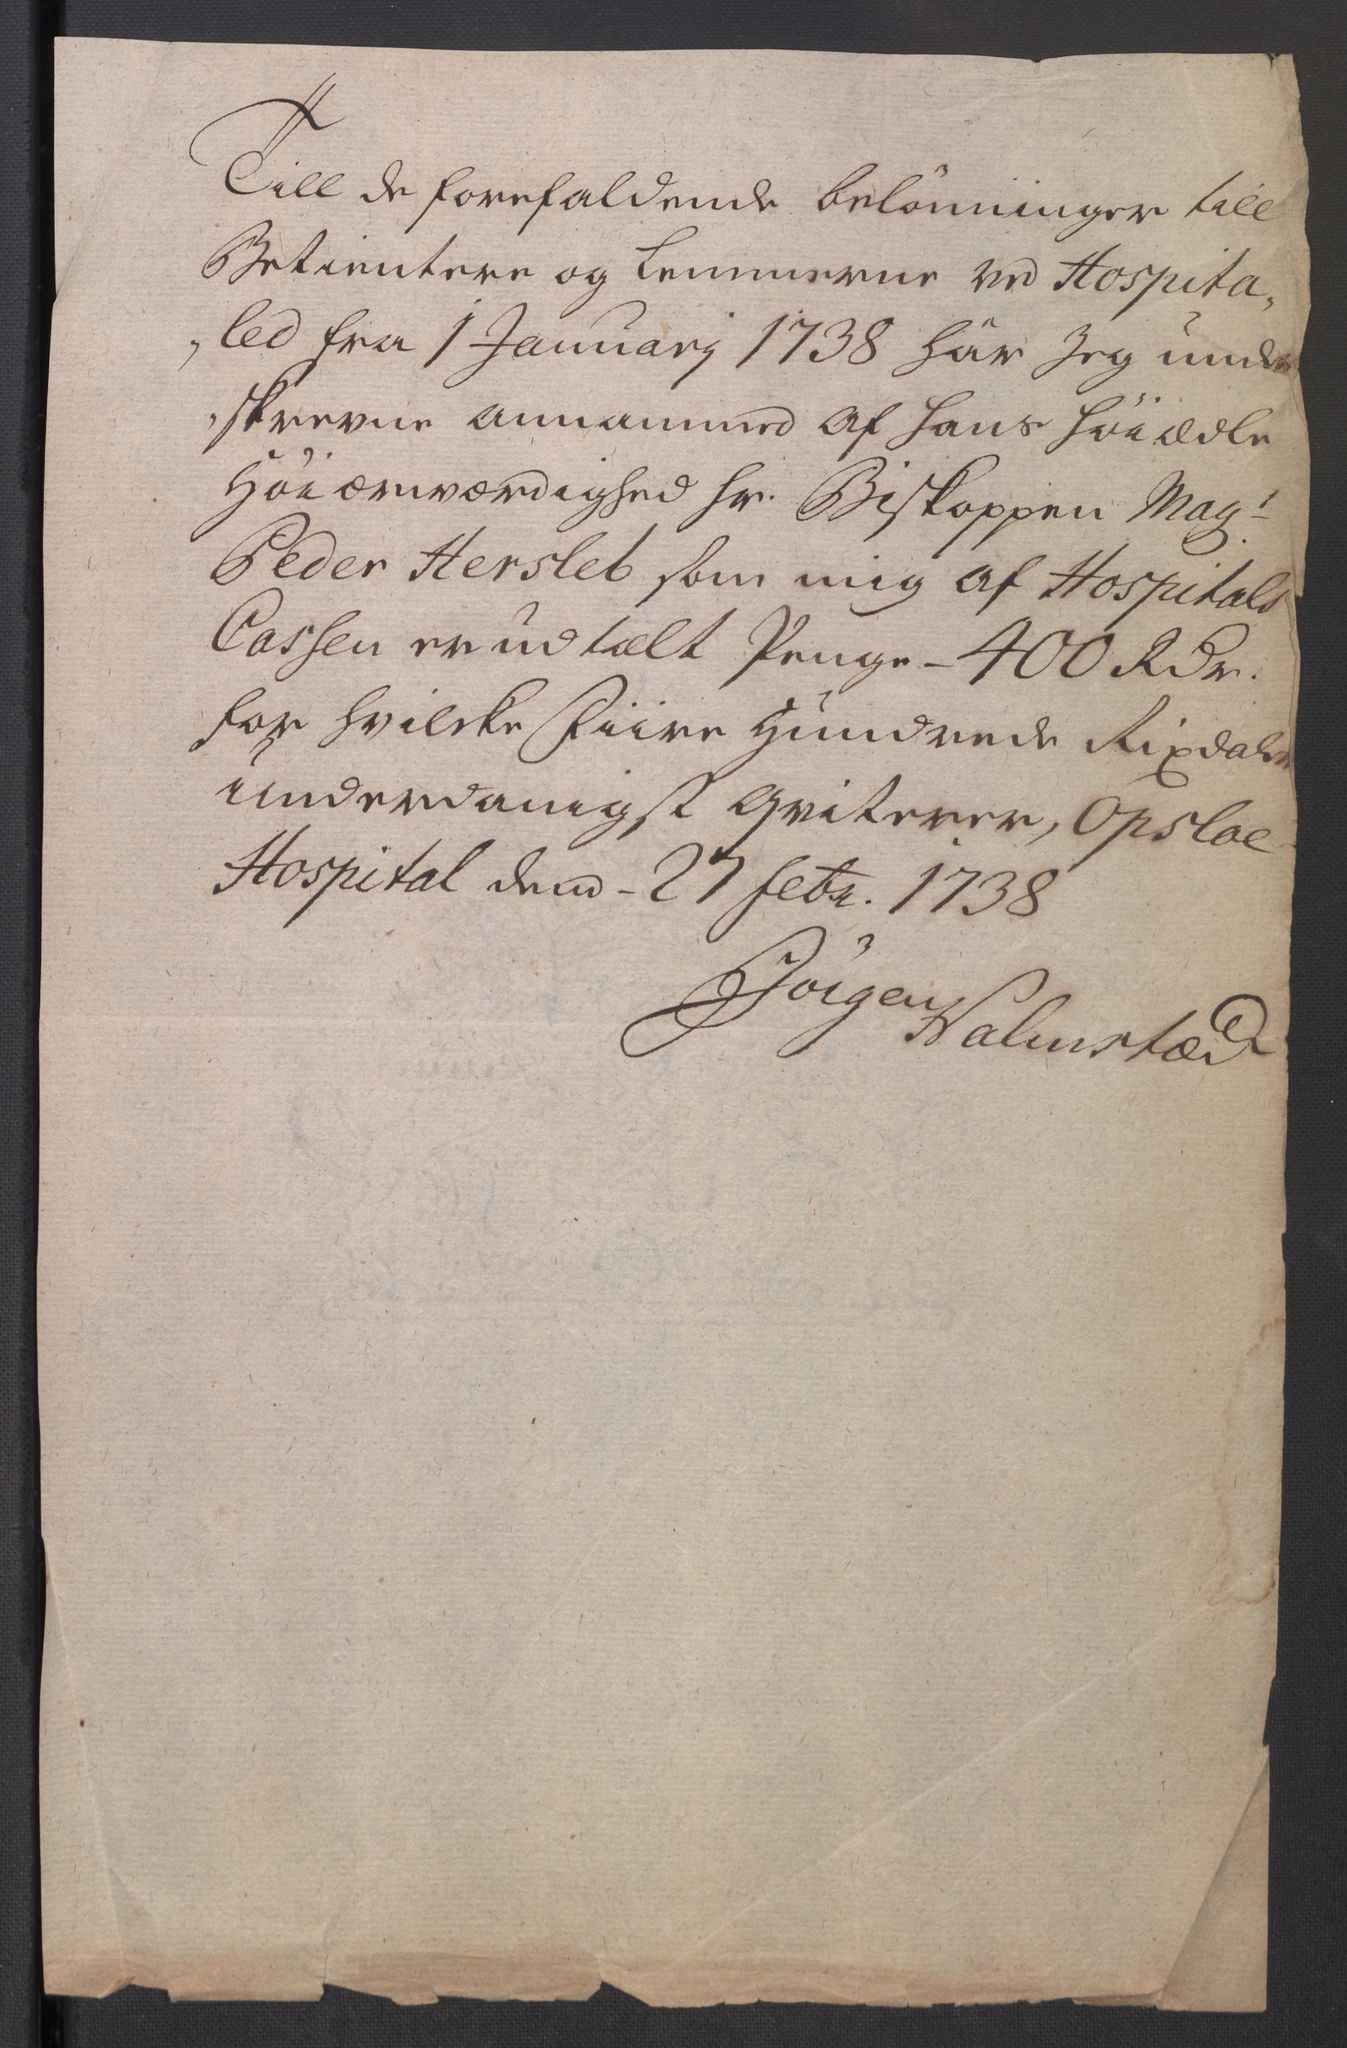 Till de forefaldende belönninger till
Betientere og Lemmerne ved Hospita„
„led fra 1 Januarj 1738 har Jeg under
„skrevne annammed af Hans Höiædle
Höiærværdighed Hr. Biskoppen Magr
Peder Hersleb som mig af Hospitals
Cassen er udtælt Penge – 400 Rdr.
for hvilcke Fiire Hundrede Rixdaler
underdanigst Qviterer, Opsloe
Hospital dend – 27 febr. 1738
Jörgen Halmstæd